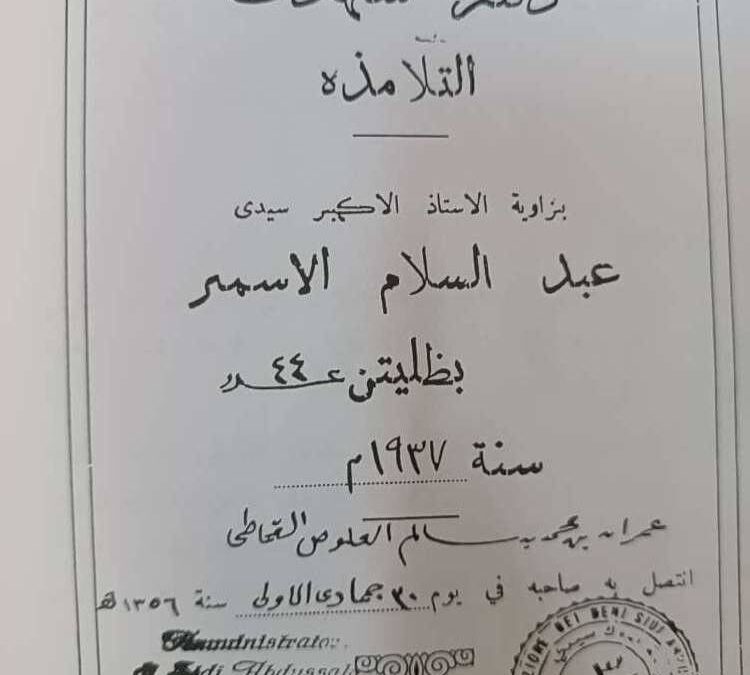 التلامذه
بزاوية الاستاذ الاكبر سيدى
عبد السلام الاسمر
بظليتن عدد ٤٤
سنة ١٩٣٧م
عمران بن محمد بن سالم العلوص القماطى
اتصل به صاحبه في يوم ٣٠ جمادى الاولى سنة ١٣٥٦ هـ
Administrator
Sidi Abdussal
ZIONE DEI BENI